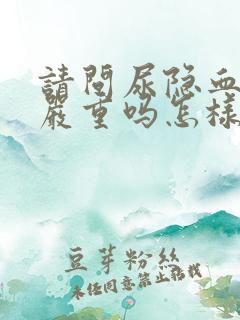 請問尿隐血
嚴重吗怎樣
豆芽粉絲
未经同意禁止转载